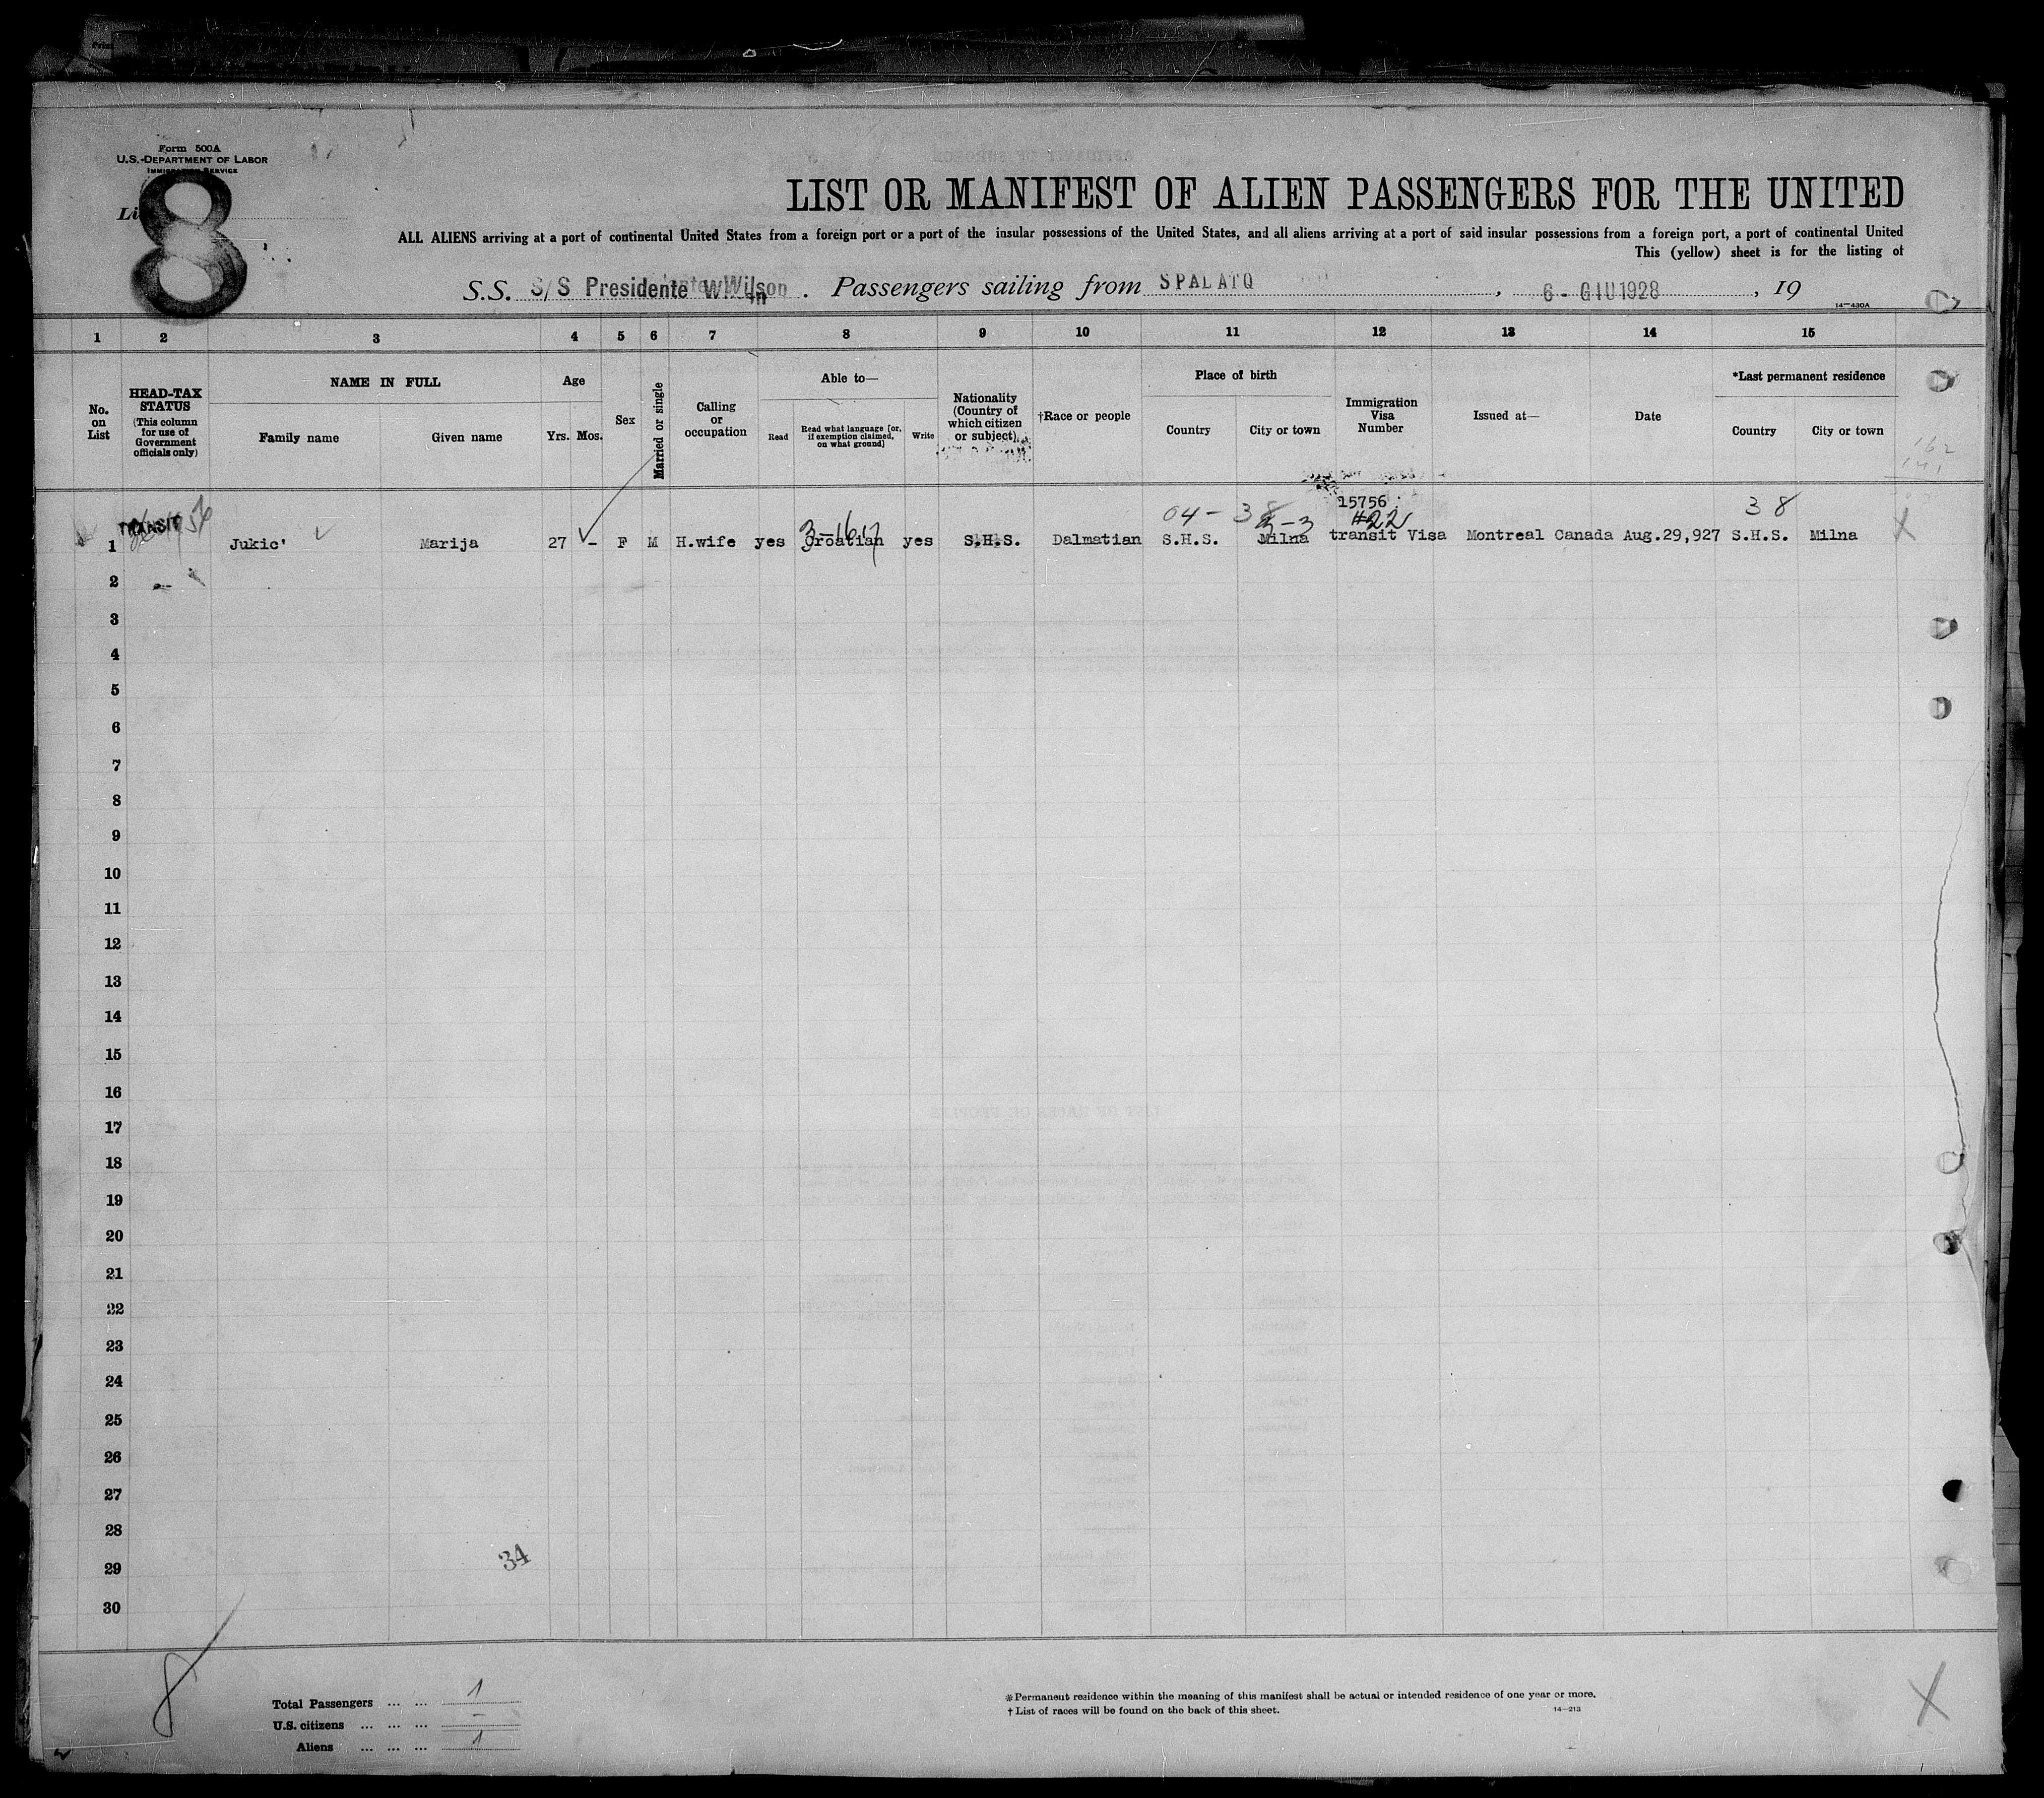 Form 500A
U.S. DEPARTMENT OF LABOR
IMMIGRATION SERVICE
8
LIST OR MANIFEST OF ALIEN PASSENGERS FOR THE UNITED
ALL ALIENS arriving at a port of continental United States from a foreign port or a port of the insular possessions of the United States, and all aliens arriving at a port of said insular possessions from a foreign port, a port of continental United
This (yellow) sheet is for the listing of
S.S. S/S Presidente W. Wilson . Passengers sailing from SPALATO , 6 - GIU 1928 , 19
14-430A
1 2 3 4 5 6 7 8 9 10 11 12 13 14 15
No. on List
HEAD-TAX STATUS (This column for use of Government officials only)
NAME IN FULL
Family name Given name
Age
Yrs. Mos.
Sex
Married or single
Calling or occupation
Able to—
Read Read what language [or, if exemption claimed, on what ground] Write
Nationality (Country of which citizen or subject)
†Race or people
Place of birth
Country City or town
Immigration Visa Number
Issued at—
Date
*Last permanent residence
Country City or town
TRANSIT 04-38 3-3 15756 #22 38
1 Jukic' Marija 27 - F M H.wife yes Croatian yes S.H.S. Dalmatian S.H.S. Milna transit Visa Montreal Canada Aug.29,927 S.H.S. Milna
2
3
4
5
6
7
8
9
10
11
12
13
14
15
16
17
18
19
20
21
22
23
24
25
26
27
28
29
30
34
Total Passengers ... ... 1
U.S. citizens ... ... ... -
Aliens ... ... ... 1
*Permanent residence within the meaning of this manifest shall be actual or intended residence of one year or more.
† List of races will be found on the back of this sheet.
14-213